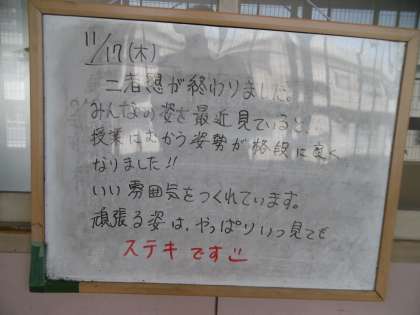 11/17(木)
二者懇が終わりました。
みんなの姿を最近見ていると、
授業にむかう姿勢が格段に良く
なりました!!
いい雰囲気をつくれています。
頑張る姿は、やっぱりいつ見ても
ステキです